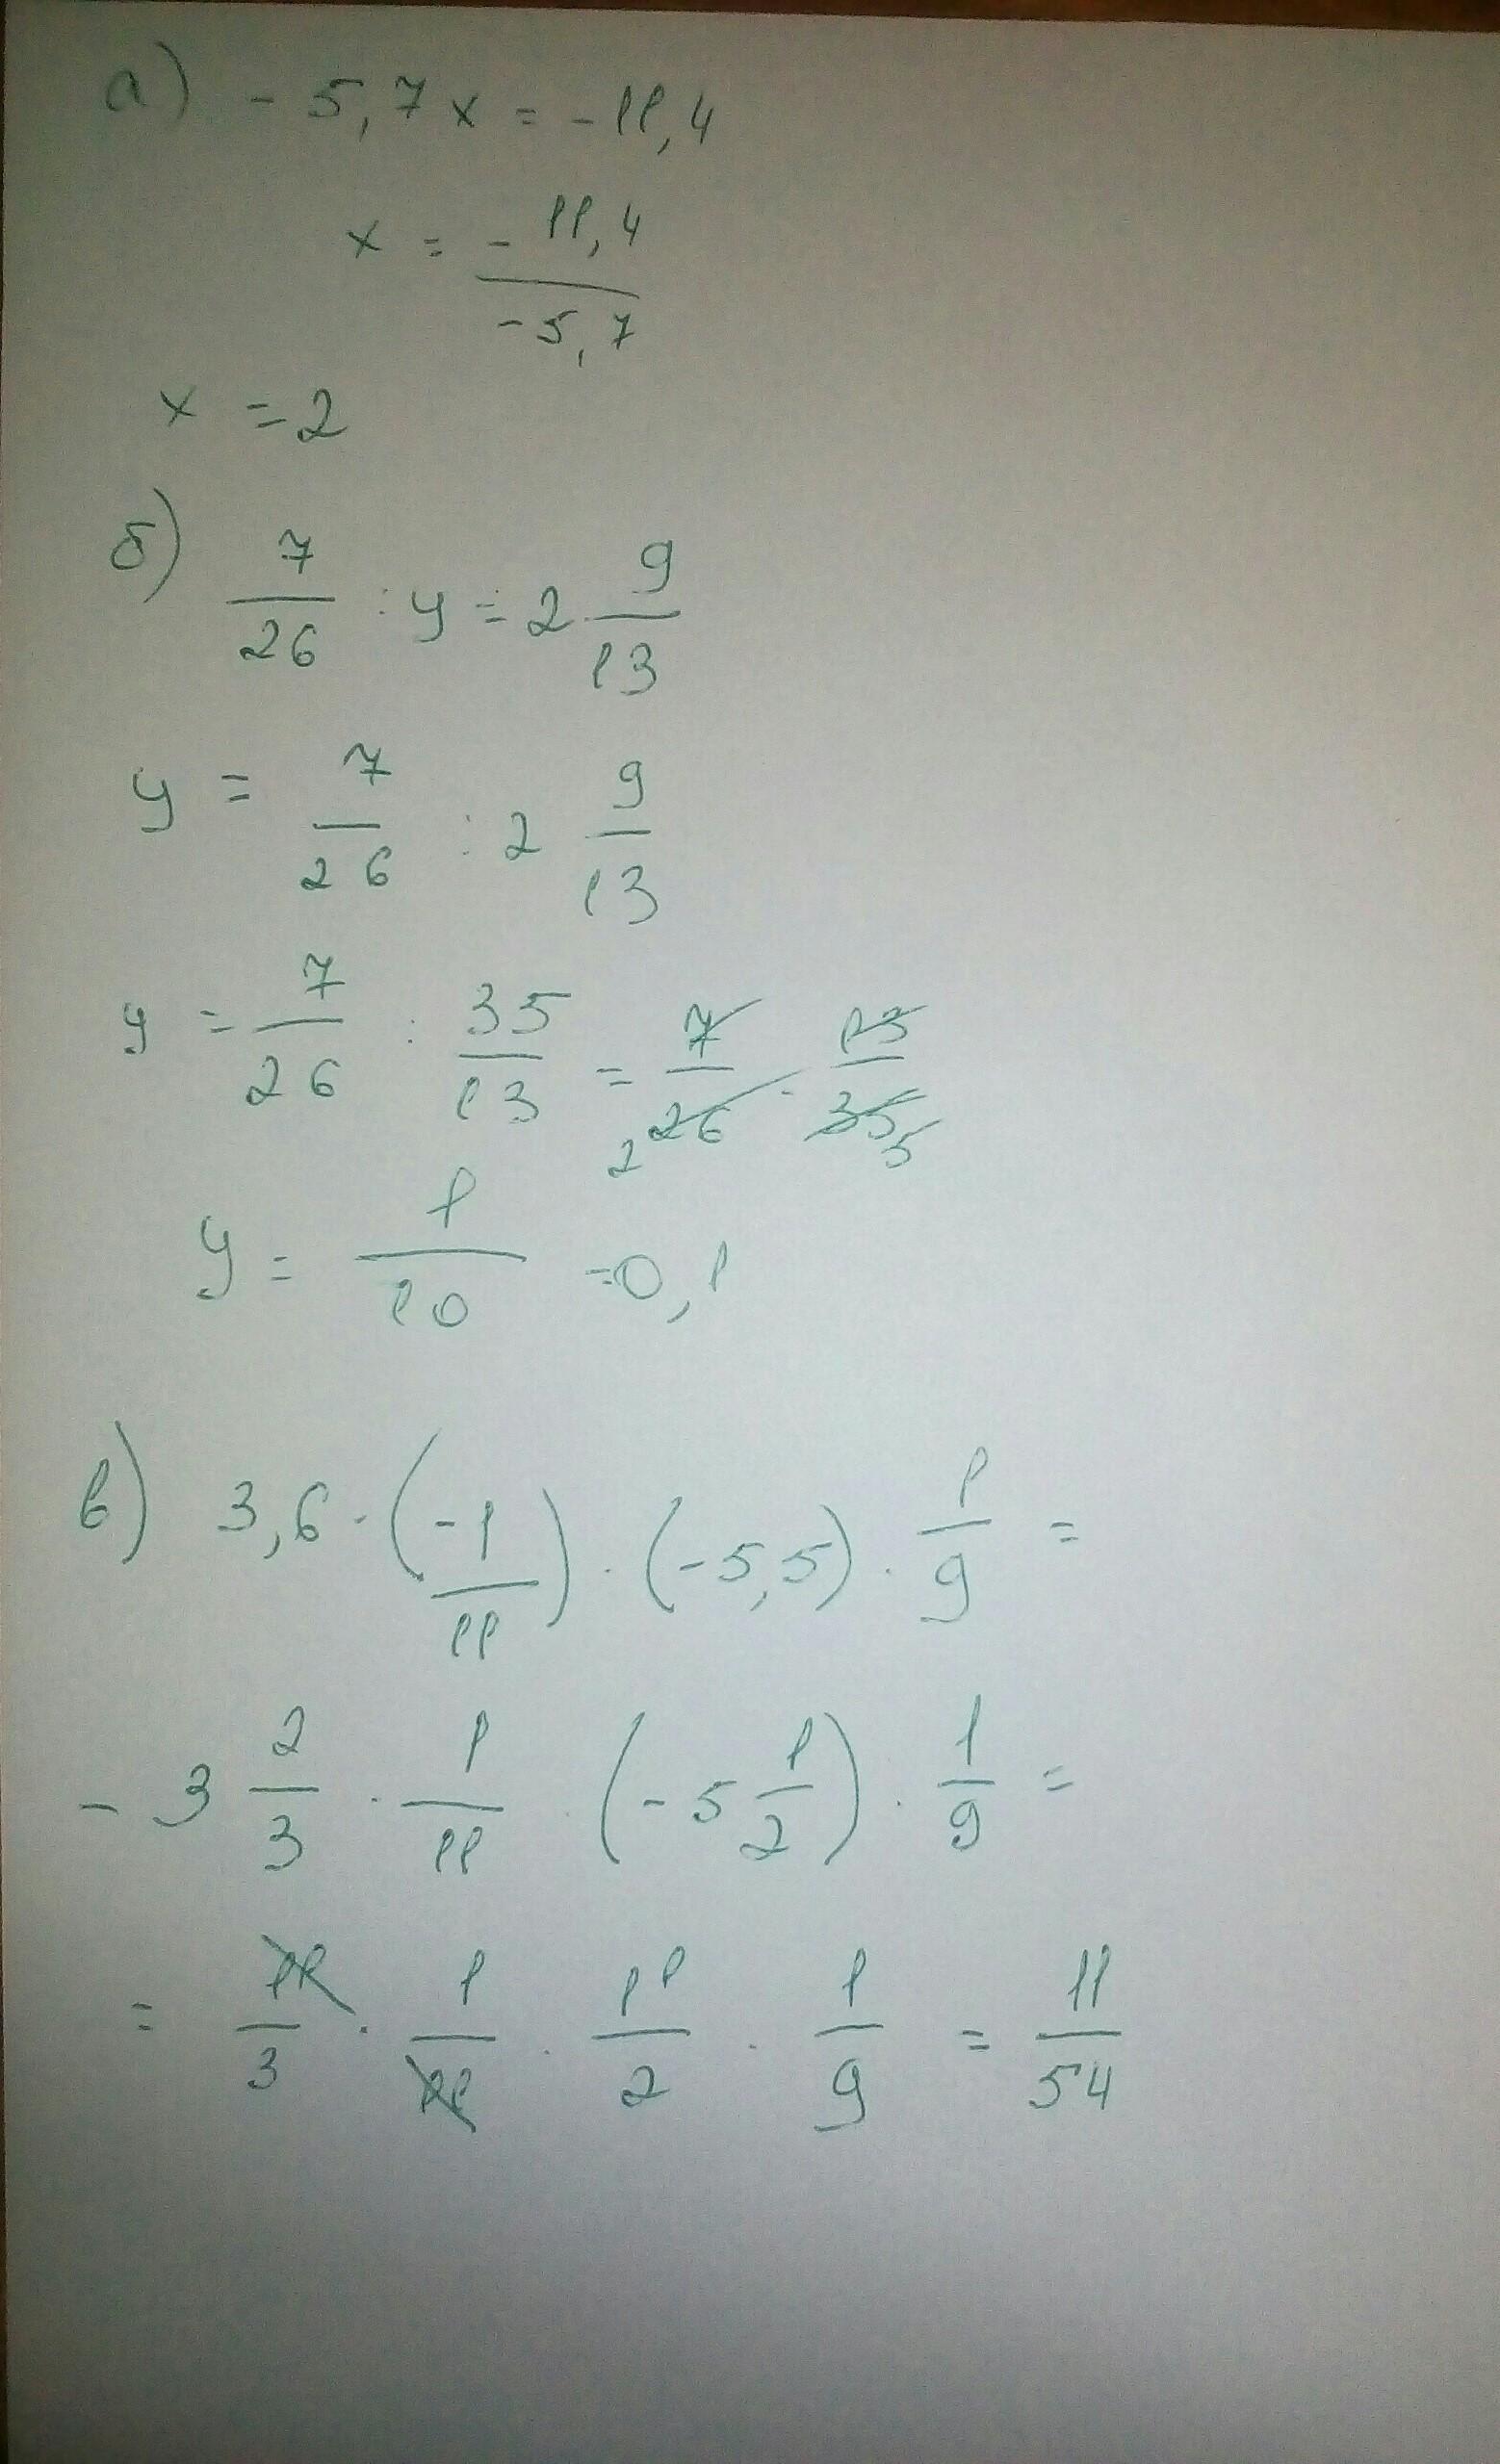 а) - 5,7x = -11,4
x = -11,4 / -5,7
x = 2
б) 7/26 : y = 2 9/13
y = 7/26 : 2 9/13
y = 7/26 : 35/13 = 7/26 · 13/35 2 5
y = 1/10 = 0,1
в) 3,6 · (-1/11) · (-5,5) · 1/9 =
- 3 2/3 · 1/11 · (-5 1/2) · 1/9 =
= 11/3 · 1/11 · 11/2 · 1/9 = 11/54